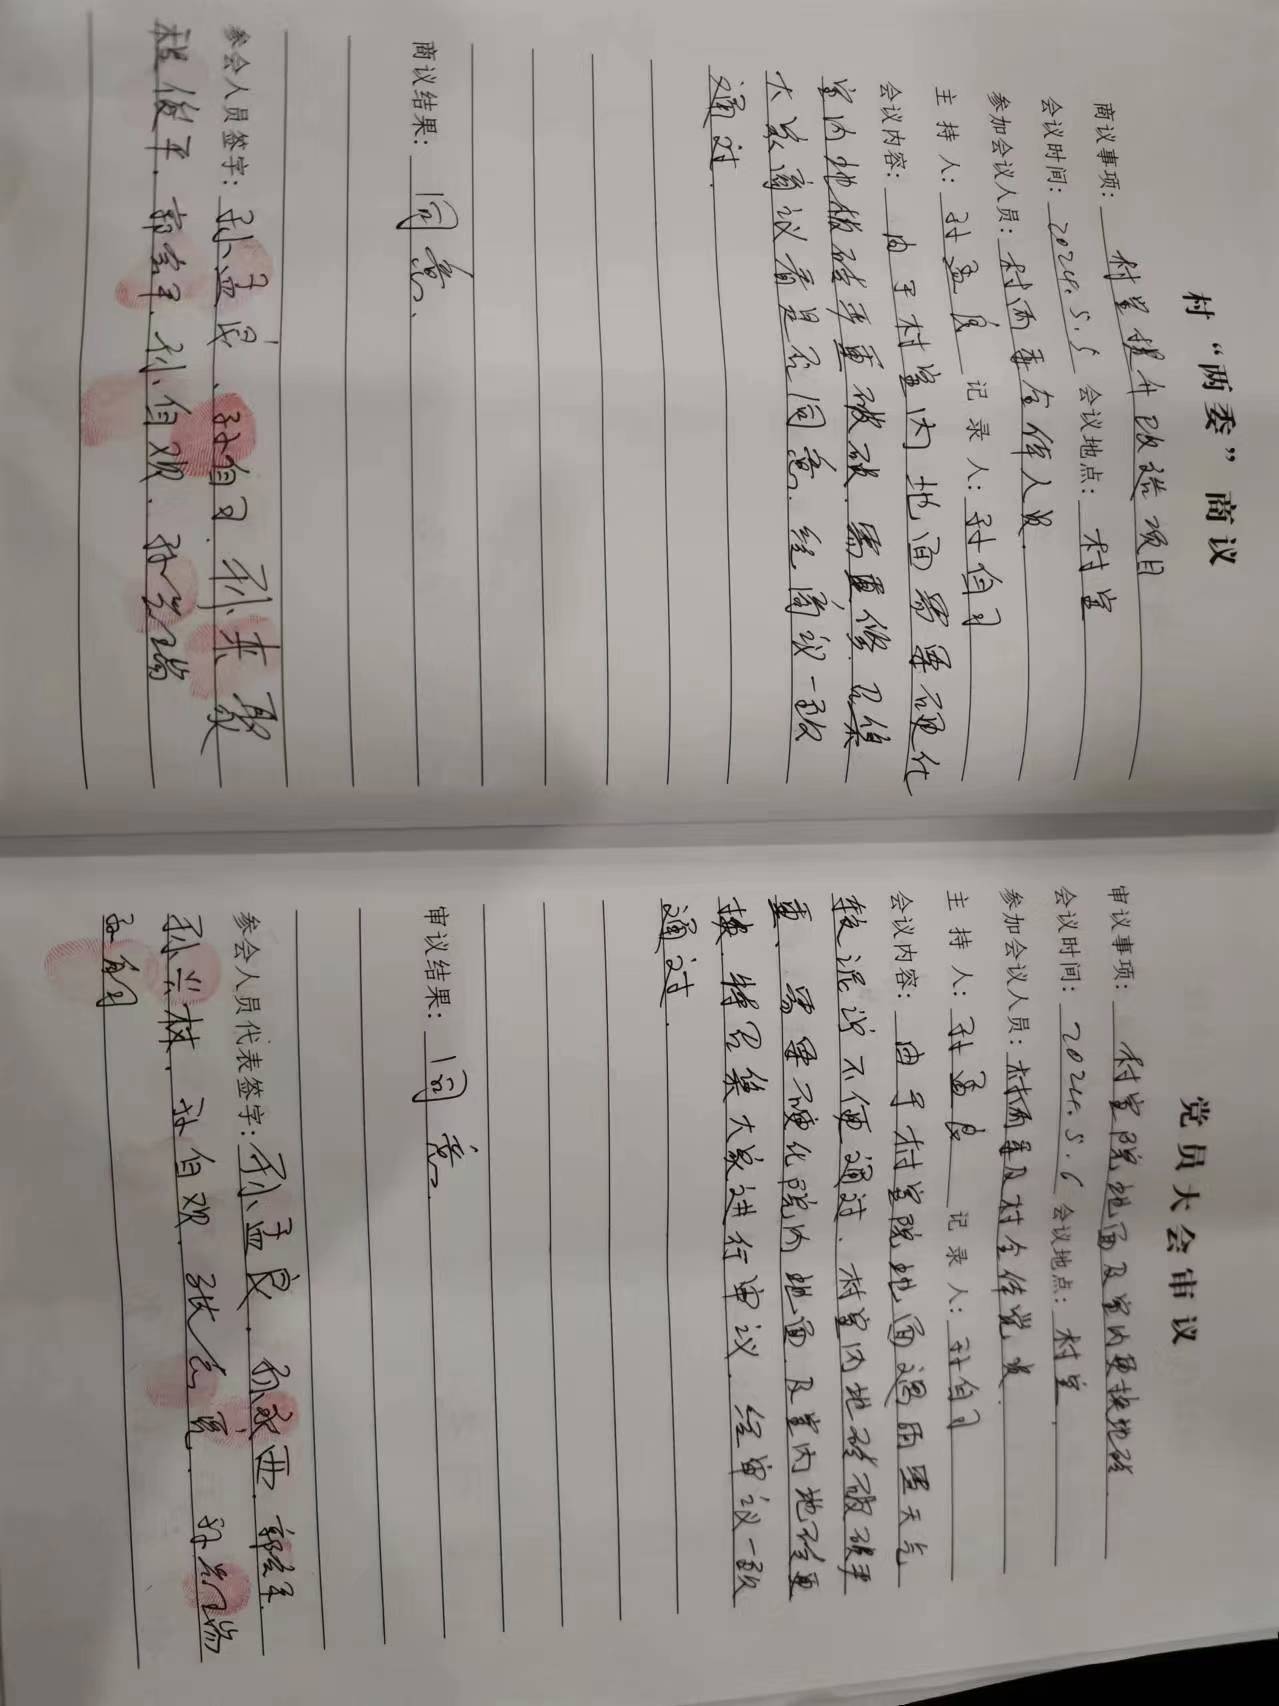 村“两委”商议
商议事项：村室提升改造项目
会议时间：2024.5.5 会议地点：村室
参加会议人员：村两委全体人员.
主持人：孙孟良 记录人：孙自习
会议内容：由于村室内地面需要硬化
室内地板砖严重破破.需重修.召集
大家商议看是否同意.经商议一致
通过.
商议结果：同意、
参会人员签字：孙孟良、孙自习.孙来聚
程俊平.郭会平.孙自观.孙兰瑞
党员大会审议
审议事项：村室院地面及室内更换地砖
会议时间：2024.5.6 会议地点：村室.
参加会议人员：村两委及村全体党员
主持人：孙孟良 记录人：孙自习
会议内容：由于村室院地面遇雨雪天气
较泥泞不便通过.村室内地砖破破严
重、需要硬化院内地面及室内地砖更
换.特召集大家进行审议.经审议一致
通过.
审议结果：同意.
参会人员代表签字：孙孟良.孙来要.郭会平.
孙兰枝.孙自观.张合宽.孙兰瑞
孙自习